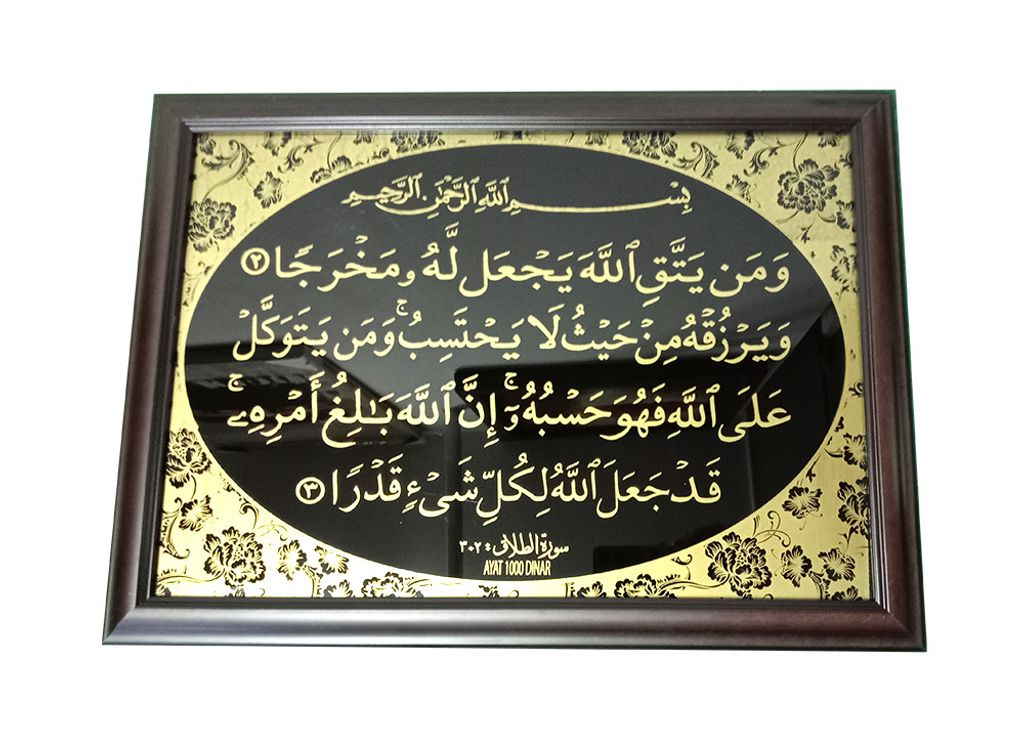 بِسْمِ ٱللَّهِ ٱلرَّحْمَٰنِ ٱلرَّحِيمِ
وَمَن يَتَّقِ ٱللَّهَ يَجْعَل لَّهُۥ مَخْرَجًا ٢
وَيَرْزُقْهُ مِنْ حَيْثُ لَا يَحْتَسِبُ ۚ وَمَن يَتَوَكَّلْ
عَلَى ٱللَّهِ فَهُوَ حَسْبُهُۥٓ ۚ إِنَّ ٱللَّهَ بَـٰلِغُ أَمْرِهِۦ ۚ
قَدْ جَعَلَ ٱللَّهُ لِكُلِّ شَىْءٍ قَدْرًا ٣
سورة الطلاق : ٢٠٣
AYAT 1000 DINAR